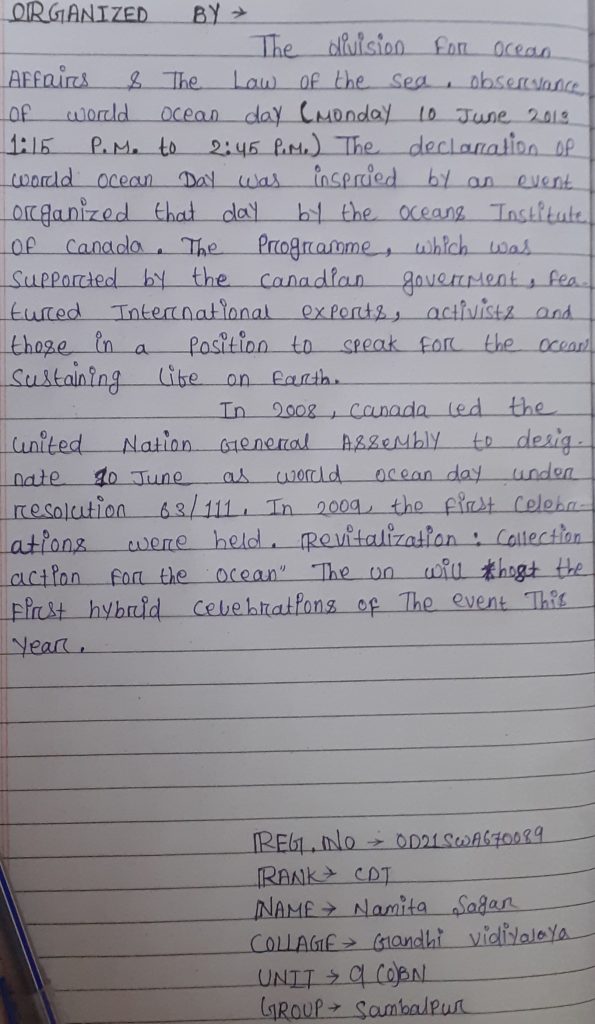 ORGANIZED BY →
The division for ocean
Affairs & The Law of the sea. observance
of world ocean day (Monday 10 June 2013
1:15 P.M. to 2:45 P.M.) The declaration of
world ocean Day was inspried by an event
organized that day by the oceans Institute
of Canada. The Programme, which was
Supported by the Canadian goverment, fea-
tured International experts, activists and
those in a position to speak for the ocean
Sustaining life on Earth.
In 2008, Canada led the
united Nation General Assembly to desig-
nate 10 June as world ocean day under
resolution 63/111. In 2009, the first Celebr-
ations were held. Revitalization : Collection
action for the ocean" The un will host the
First hybrid celebrations of The event This
Year.
REG. NO → OD21SWA670089
RANK → CDT
NAME → Namita Sagar
COLLAGE → Gandhi Vidiyalaya
UNIT → 9 (O)BN
GROUP → Sambalpur